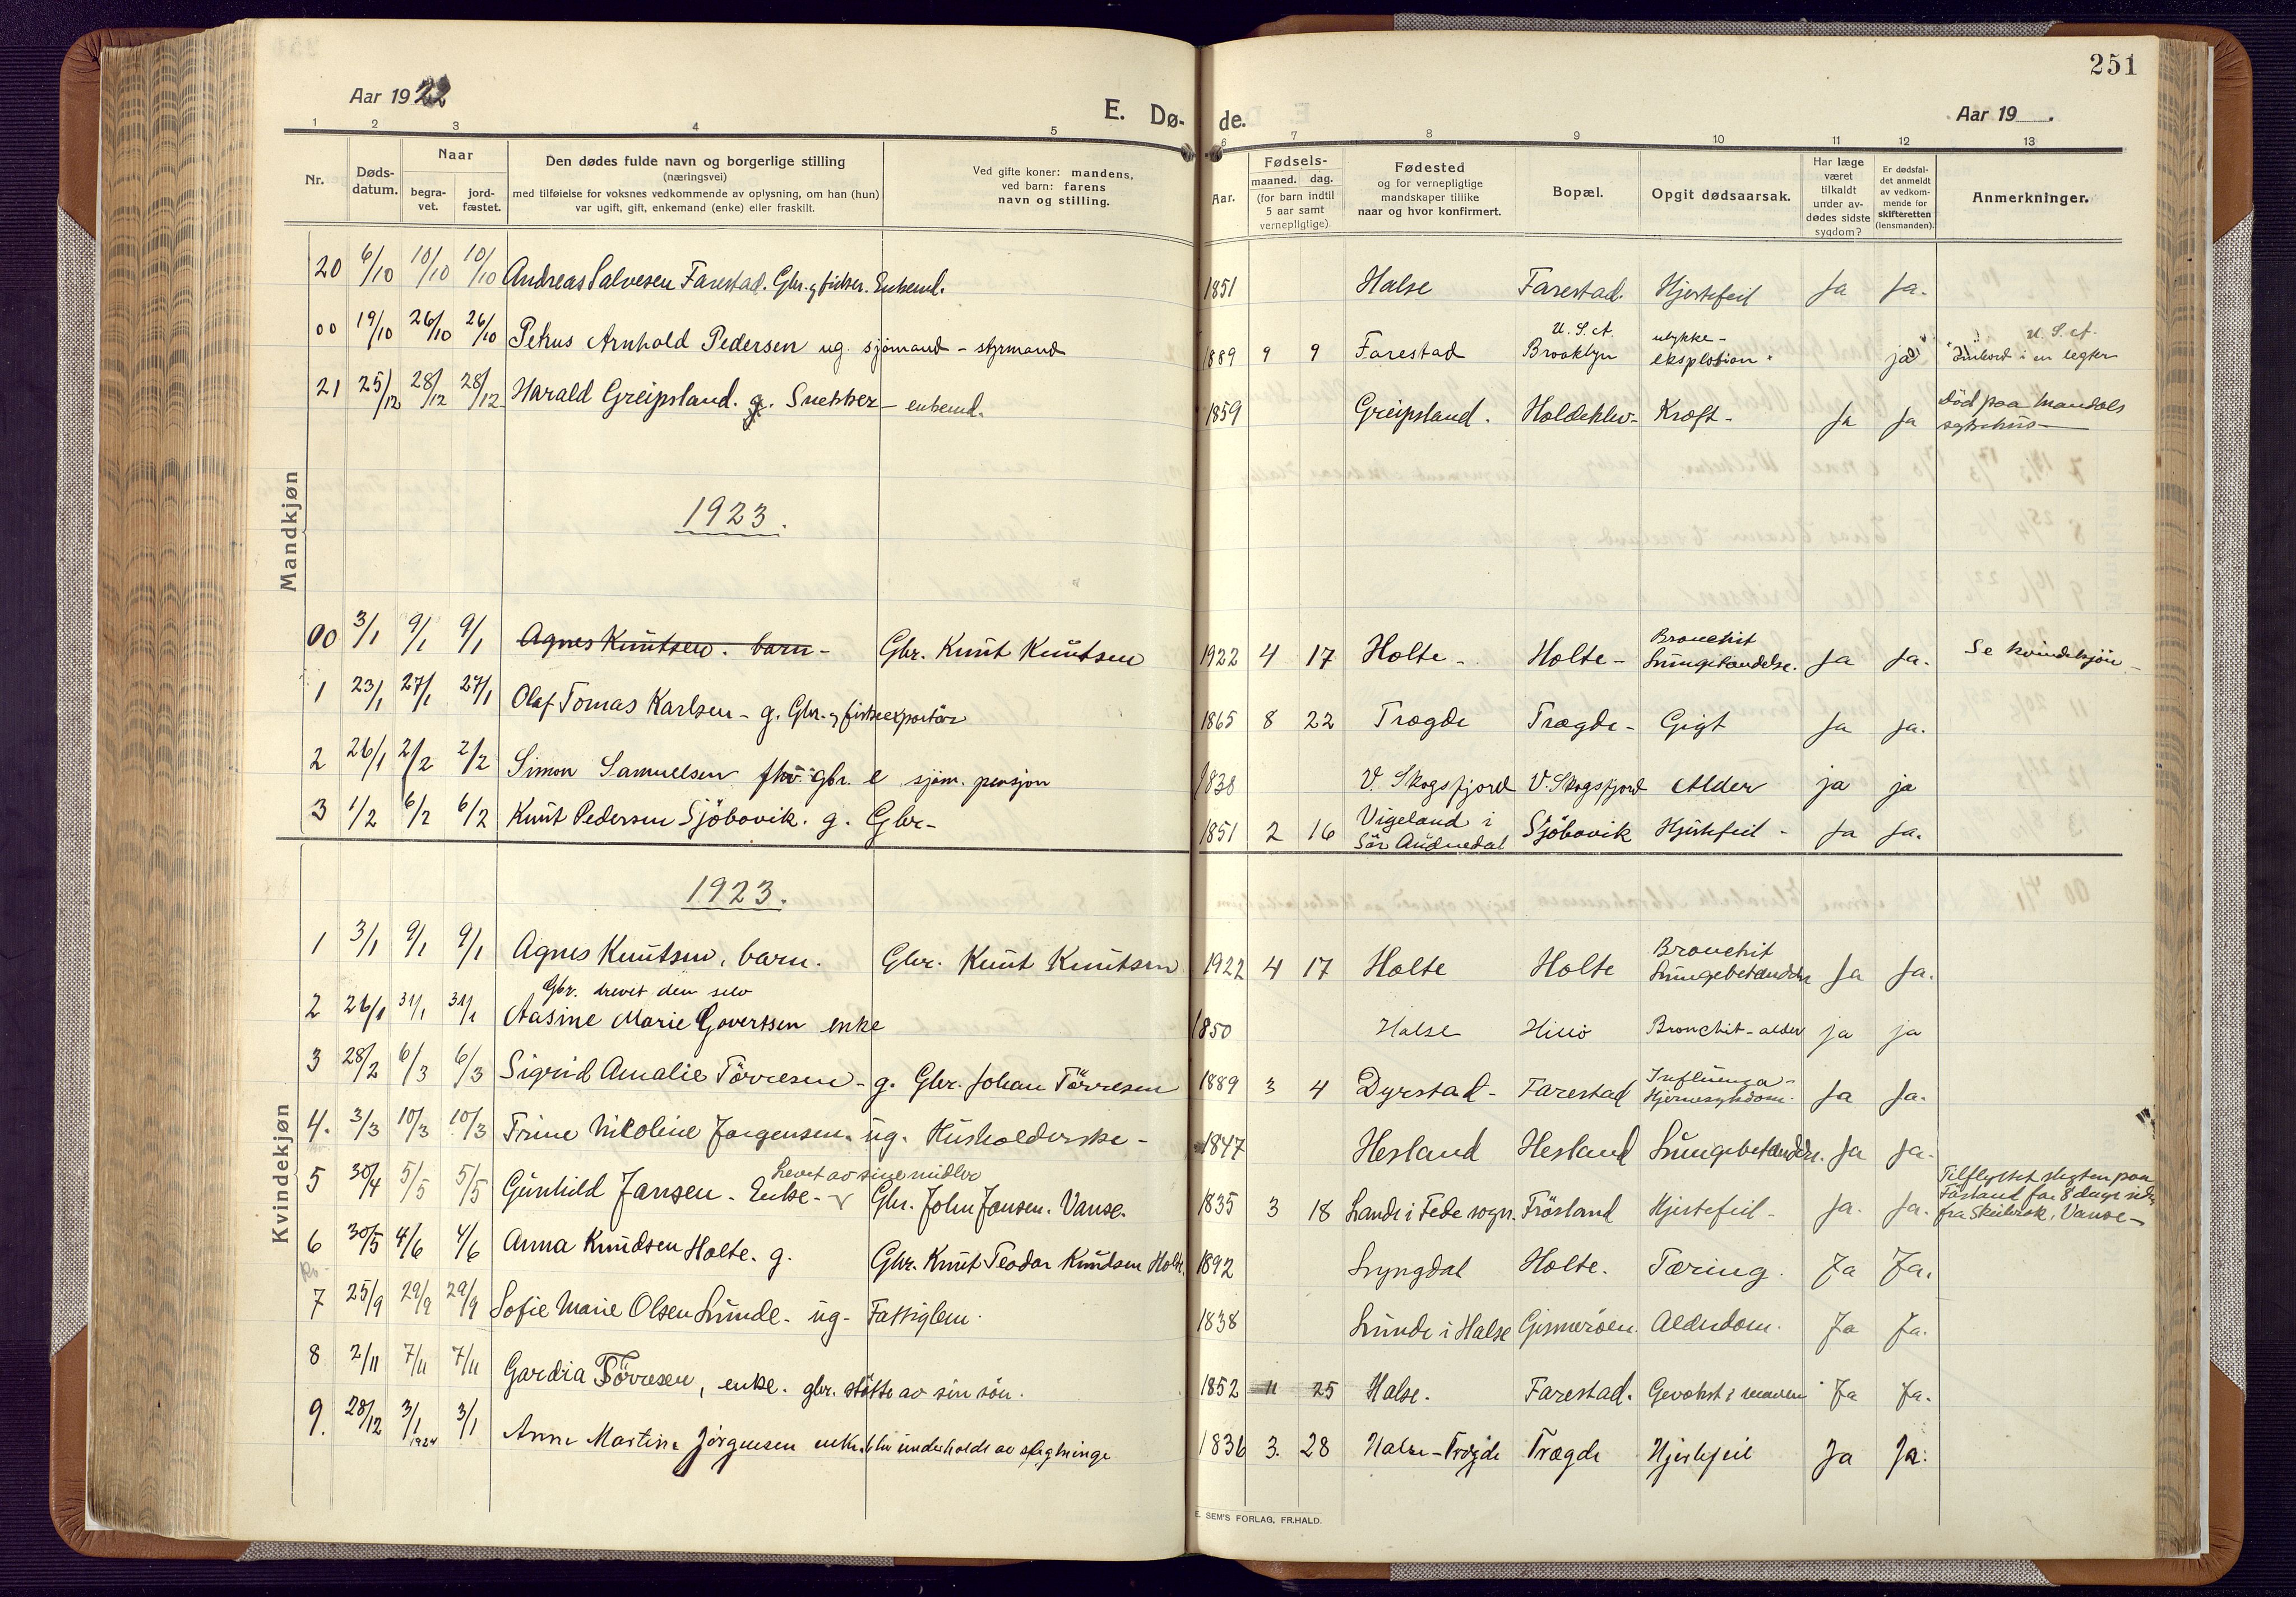 251
Aar 1922
E. Dø- de.
Aar 19 .
1 2 3 4 5 6 7 8 9 10 11 12 13
Nr.
Døds-
datum.
Naar
begra-
vet.
jord-
fæstet.
Den dødes fulde navn og borgerlige stilling
(næringsvei)
med tilføielse for voksnes vedkommende av oplysning, om han (hun)
var ugift, gift, enkemand (enke) eller fraskilt.
Ved gifte koner: mandens,
ved barn: farens
navn og stilling.
Aar.
Fødsels-
maaned. dag.
(for barn indtil
5 aar samt
vernepligtige).
Fødested
og for vernepligtige
mandskaper tillike
naar og hvor konfirmert.
Bopæl.
Opgit dødsaarsak.
Har læge
været
tilkaldt
under av-
dødes sidste
sygdom?
Er dødsfal-
det anmeldt
av vedkom-
mende for
skifteretten
(lensmanden).
Anmerkninger.
Mandkjøn
20 6/10 10/10 10/10 Andreas Salvesen Farestad. Gbr. og fisker. Enkemd. 1851 Halse Farestad. Hjertefeil Ja Ja.
00 19/10 26/10 26/10 Petrus Arnhold Pedersen ug. sjömand - styrmand 1889 9 9 Farestad U. S. A. Brooklyn ulykke- eksplosion. ja U. S. A. i en legter
21 25/12 28/12 28/12 Harald Greipsland. g. Snekker - enkemd. 1859 Greipsland. Holdeklev- Kræft- Ja Ja Död paa Mandals sykehus-
1923.
00 3/1 9/1 9/1 Agnes Knutsen. barn- Gbr. Knut Knutsen 1922 4 17 Holte- Holte- Bronchit Lungebetændelse. Ja Ja. Se kvindekjön-
1 23/1 27/1 27/1 Olaf Tomas Karlsen - g. Gbr. og fiskeexportör 1865 8 22 Trægde Trægde- Gigt Ja Ja.
2 26/1 2/2 2/2 Simon Samuelsen fhv. gbr. e sjöm. pensjon 1838 V. Skogsfjord V. Skogsfjord Alder ja ja
3 1/2 6/2 6/2 Knut Pedersen Sjöbovik. g. Gbr- 1851 2 16 Vigeland i Sör Audnedal Sjöbovik Hjertefeil - Ja Ja.
Kvindekjøn
1923.
1 3/1 9/1 9/1 Agnes Knutsen, barn. Gbr. Knut Knutsen 1922 4 17 Holte Holte Bronchit Lungebetændelse Ja Ja.
Gbr. drevet den selv
2 26/1 31/1 31/1 Aasine Marie Govertsen enke 1850 Halse Hillö Bronchit - alder ja ja
3 28/2 6/3 6/3 Sigrid Amalie Törresen - g. Gbr. Johan Törresen 1889 3 4 Dyrstad- Farestad Influenza- Hjernesykdom. Ja Ja.
4. 3/3 10/3 10/3 Trine Nikoline Jørgensen. ug. Husholderske - 1847 Hesland Hesland Lungebetændelse. Ja Ja.
Levet av sine midler
5 30/4 5/5 5/5 Gunhild Jansen - Enke- Gbr. John Jansen. Vanse. 1835 3 18 Lande i Fede sogn. Fröisland Hjertefeil - Ja. Ja. Tilflyttet slegten paa for 8 dage siden fra Vanse-
6 30/5 4/6 4/6 Anna Knudsen Holte. g. Gbr. Knut Teodor Knudsen Holte. 1892 Lyngdal Holte. Tæring. Ja Ja.
7 25/9 29/9 29/9 Sofie Marie Olsen Lunde - ug - Fattiglem. 1838 Lunde i Halse Gismerøen. Alderdom. Ja Ja.
8 2/11 7/11 7/11 Gardia Törresen, enke. gbr. støtte av sin sön. 1852 11 25 Halse. Farestad. Gevækst i maven Ja Ja.
9. 28/12 3/1 1924 3/1 Anne Martine Jörgensen enke. blir underholdt av slegtninge 1836 3. 28 Halse-Trægde Trægde Hjertefeil Ja Ja.
E. SEM'S FORLAG, FR.HALD.